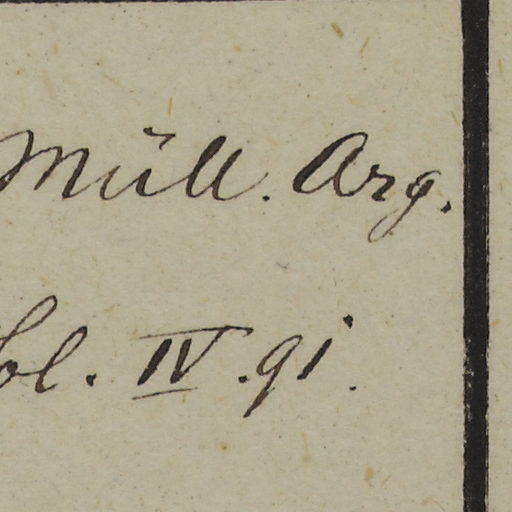 Müll. Arg.
ol. IV. 91.